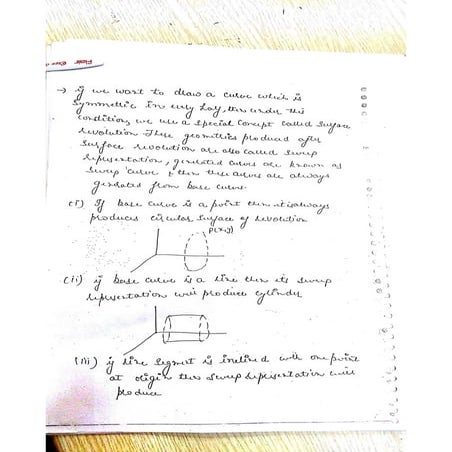 → if we want to draw a curve which is
symmetric in every half, then under this
condition, we use a special concept called surface
revolution. These geometries produced after
surface revolution are also called sweep
representation, generated curves are known as
sweep curve & then these curves are always
generated from base curve.
(i) If base curve is a point then it is always
produces circular surface of revolution
P(x,y)
(ii) if base curve is a line then its sweep
representation will produce cylinder
(iii) if line segment is inclined with one point
at origin then sweep representation will
produce